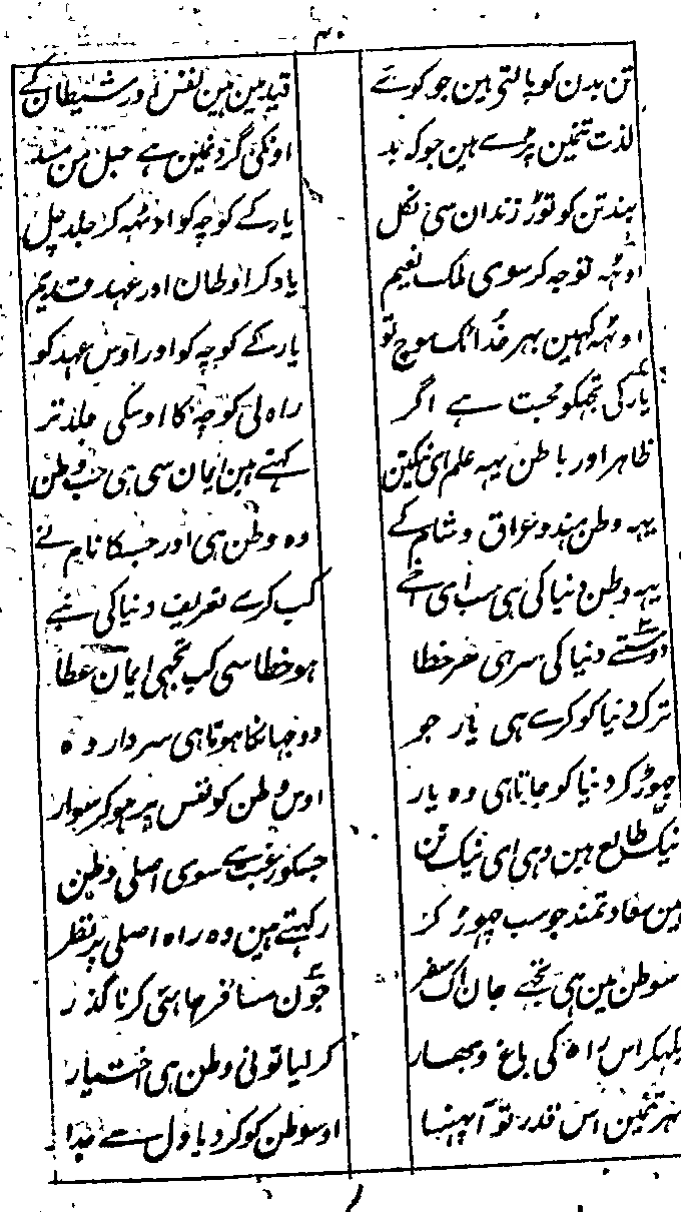 ۳۰
تن بدن کو پالتی ہین جو کوئے قید مین ہین نفس اور شیطان کے
لذت تنمین پڑے ہین جو کہ بد اونکی گردنمین ہے حبل من مسد
بند تن کو توڑ زندان سی نکل یار کے کوچہ کو اوٹہہ کر جلد چل
اوٹہہ توجہ کر سوی ملک نعیم یاد کر اوطان اور عہد قدیم
اوٹہہ کہین بہر خدا ٹک سوچ تو یار کے کوچہ کو اور اوس عہد کو
یار کی تجہکو محبت ہے اگر راہ لی کوچہ کا اوسکی جلد تر
ظاہر اور باطن یہہ علم ای نیکتن کہتے ہین ایمان سی ہی حب وطن
یہہ وطن ہند و عراق و شام کے وہ وطن ہی اور جسکا نام نے
یہہ وطن دنیا کی ہی سب ای اخے کب کرے تعریف دنیا کی نبے
دوستے دنیا کی سر ہی ہر خطا ہو خطا سی کب تجہی ایمان عطا
ترک دنیا کو کرے ہی یار جو دوجہانکا ہوتا ہی سردار وہ
چہوڑ کر دنیا کو جاتا ہی وہ یار اوس وطن کو نفس پر ہو کر سوار
نیک طالع ہین وہی ای نیک تن جسکو رغبت ہے سوی اصلی وطن
ہین سعادتمند جو سب چہوڑ کر رکہتے ہین وہ راہ اصلی پر نظر
سو وطن مین ہی تجہے جان اک سفر جون مسافر چاہئی کرنا گذر
دیکہکر اس راہ کی باغ و بہار کر لیا تونی وطن ہی اختیار
شہر تنمین اس قدر تو آ پہنسا اوس وطن کو کر دیا دل سے جدا